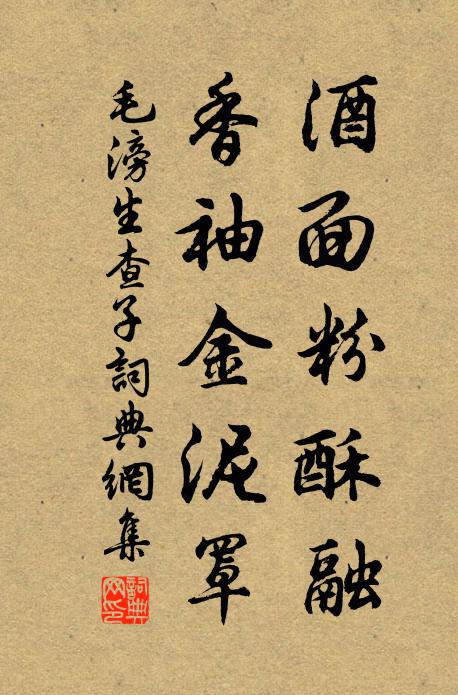 酒面粉酥融
香袖金泥罩
毛滂生查子詞典網集
詞典网印